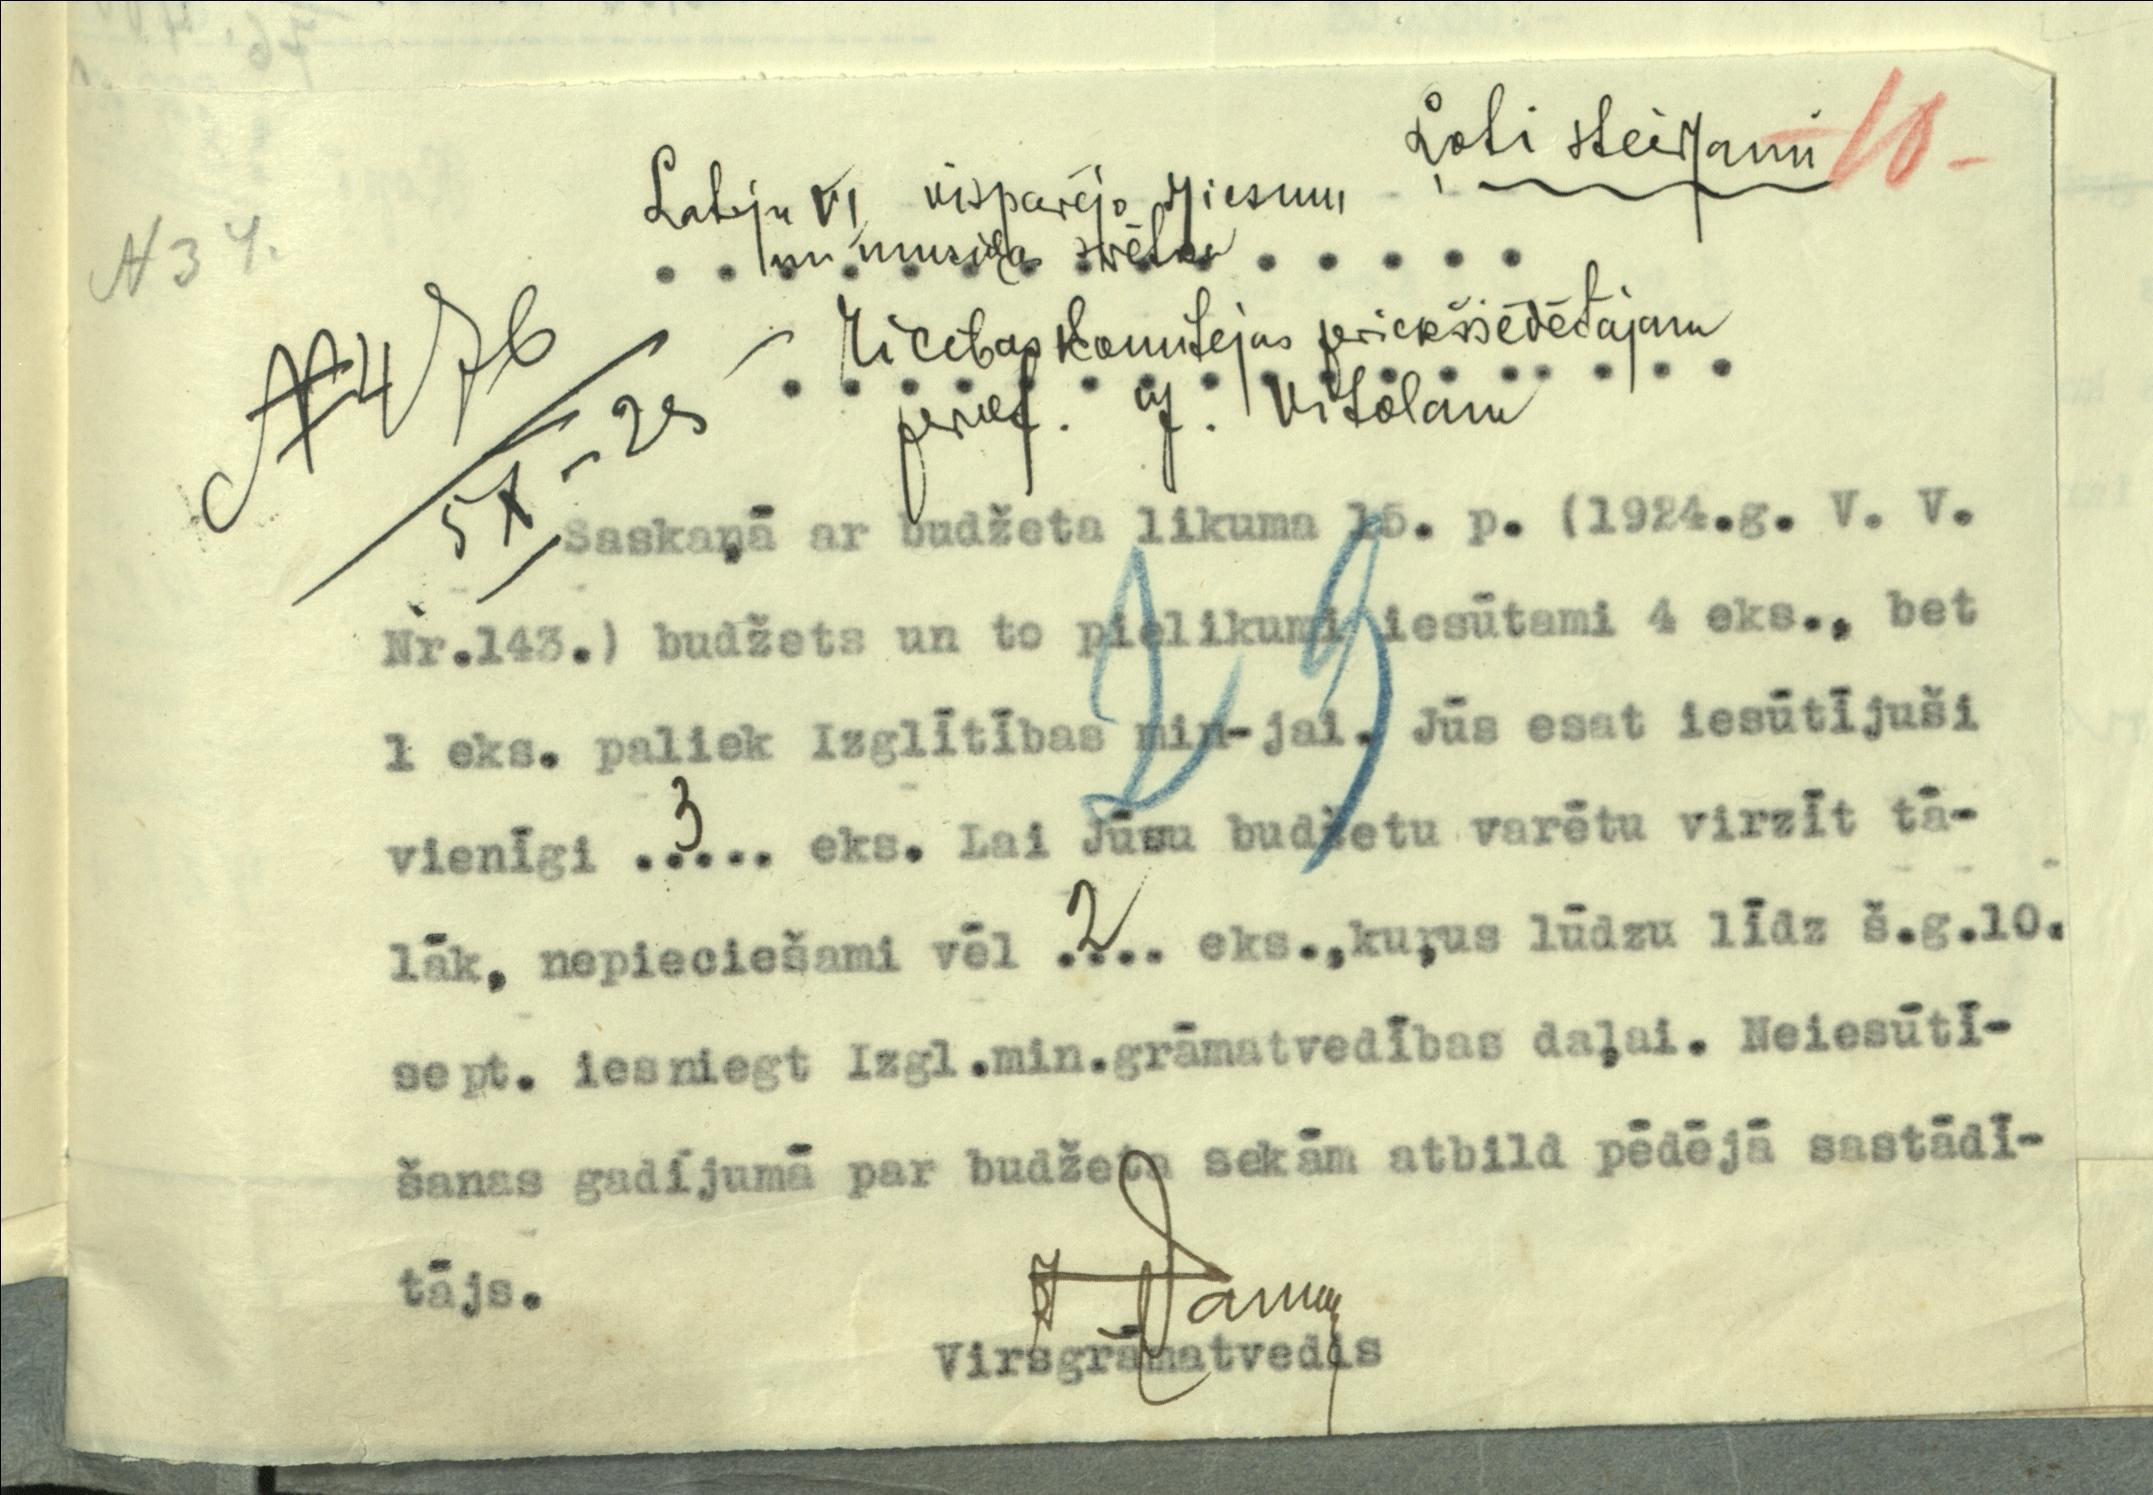 Ļoti steidzami 10-
Latvju VI vispārējo dziesmu
un musikas svētku
N 34.
Rīcības komitejas priekšsēdētājam
N 476
prof. J. Vītolam
5 X - 25
Saskaņā ar budžeta likuma 15. p. (1924.g. V. V.
29
Nr.143.) budžets un to pielikumi iesūtami 4 eks., bet
1 eks. paliek Izglītības min-jai. Jūs esat iesūtījuši
vienīgi ..3... eks. Lai Jūsu budžetu varētu virzīt tā-
lāk, nepieciešami vēl .2.. eks.,kuŗus lūdzu līdz š.g.10.
sept. iesniegt Izgl.min.grāmatvedības daļai. Neiesūtī-
šanas gadījumā par budžeta sekām atbild pēdējā sastādī-
tājs.
Virsgrāmatvedis